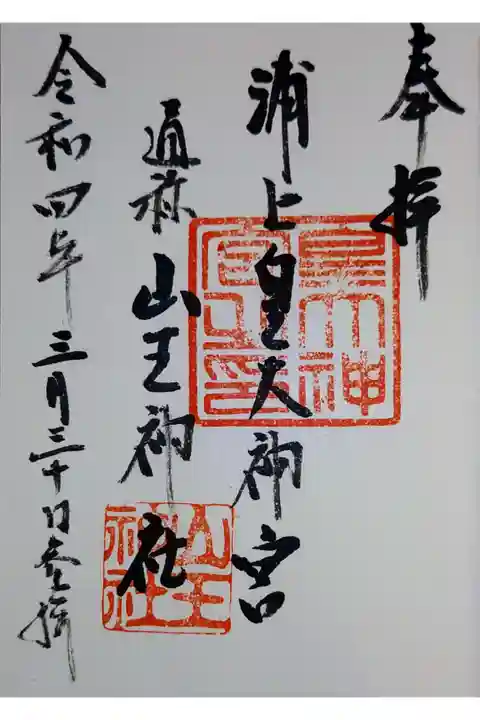 奉拝
浦上皇大神宮
皇大神宮之印
通称 山王神社
山王神社
令和四年三月三十日参拝